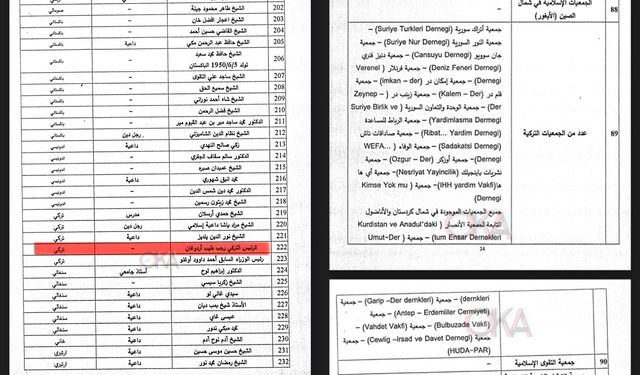 202 الشيخ طاهر محمود جيلة – صومالي
203 الشيخ اعجاز افضل خان – باكستاني
204 الشيخ القاضي حسين أحمد – باكستاني
205 الشيخ حافظ عبد الرحمن مكي داعية باكستاني
206 الشيخ حافظ محمد سعيد
تولد 1950/6/5 الباكستان – باكستاني
207 الشيخ ساجد علي النقوي – باكستاني
208 الشيخ سميع الحق – باكستاني
209 الشيخ شاه أحمد نوراني – باكستاني
210 الشيخ فضل الرحمن – باكستاني
211 الدكتور محمد ساجد مير بن عبد القيوم مير – باكستاني
212 الشيخ نظام الدين الشاميزئي رجل دين باكستاني
213 زكي صالح النهدي داعية اندونيسي
214 الدكتور سالم سقاف الجفري – اندونيسي
215 الشيخ عميدان صبره – اندونيسي
216 محمد انيق شهوري – اندونيسي
217 الدكتور محمد دين شمس الدين – اندونيسي
218 الشيخ محمد زيتون رسمين – اندونيسي
219 الشيخ حمدي أرسلان مدرس تركي
220 الشيخ مراد باشا داعية إسلامي رجل دين تركي
221 الشيخ نور الدين يلديز داعية تركي
222 الرئيس التركي رجب طيب أردوغان – تركي
223 رئيس الوزراء السابق أحمد داوود أوغلو – تركي
224 الدكتور إبراهيم لوح أستاذ جامعي سنغالي
225 الشيخ زكريا ميسي – سنغالي
226 سيدي غالي لو داعية سنغالي
227 الأستاذ شيخ بمب ديان – سنغالي
228 عيسى غاي – سنغالي
229 محمد مبكي ندور – سنغالي
230 الشيخ آدم نوح آدم داعية غاني
231 الشيخ حسين موسى حسين داعية ارتيري
232 الشيخ رمضان محمد نور داعية ارتيري
88 الجمعيات الإسلامية في شمال
الصين (الأيغور)
89 عدد من الجمعيات التركية
جمعية أتراك سورية (Suriye Turkleri Dernegi) –
جمعية النور السورية (Suriye Nur Dernegi) – جمعية
جان سويوبو (Cansuyu Dernegi) – جمعية دنيز فنري
(Deniz Feneri Dernegi) – جمعية فرنلار (Verenel
Dernegi) – جمعية إمكان در (imkan – der) – جمعية
قلم در (Kalem – Der) – جمعية زينب در (Zeynep –
Der) – جمعية الوحدة والتعاون السورية (Suriye Birlik ve
Yardimlasma Dernegi) – جمعية الرباط للمساعدة
(Ribat... Yardim Dernegi) – جمعية صادقات تاش
(Sadakatsi Dernegi) – جمعية الوفاء (WEFA...
Dernegi) – جمعية أوزكر (Ozgur – Der) – جمعية
نشريات يايينجيلك (Nesriyat Yayincilik) – جمعية أي ها
ها (IHH yardim Vakfi) – جمعية (Kimse Yok mu
Dernegi)
جميع الجمعيات الموجودة في شمال كردستان والأناضول
(Kurdistan ve Anadul'daki التابعة لجمعية الأنصار
tum Ensar Dernekleri) – جمعية (Umut-Der
34
dernkleri) – جمعية (Garip –Der dernkleri) – جمعية
(Antep – Erdemliler Cermiyeti) – جمعية
(Bulbuzade Vakfi) – جمعية (Vahdet Vakfi) – جمعية
(Cewlig –Irsad ve Davet Dernegi) – جمعية
(HUDA-PAR)
90 جمعية التقوى الإسلامية
OKA